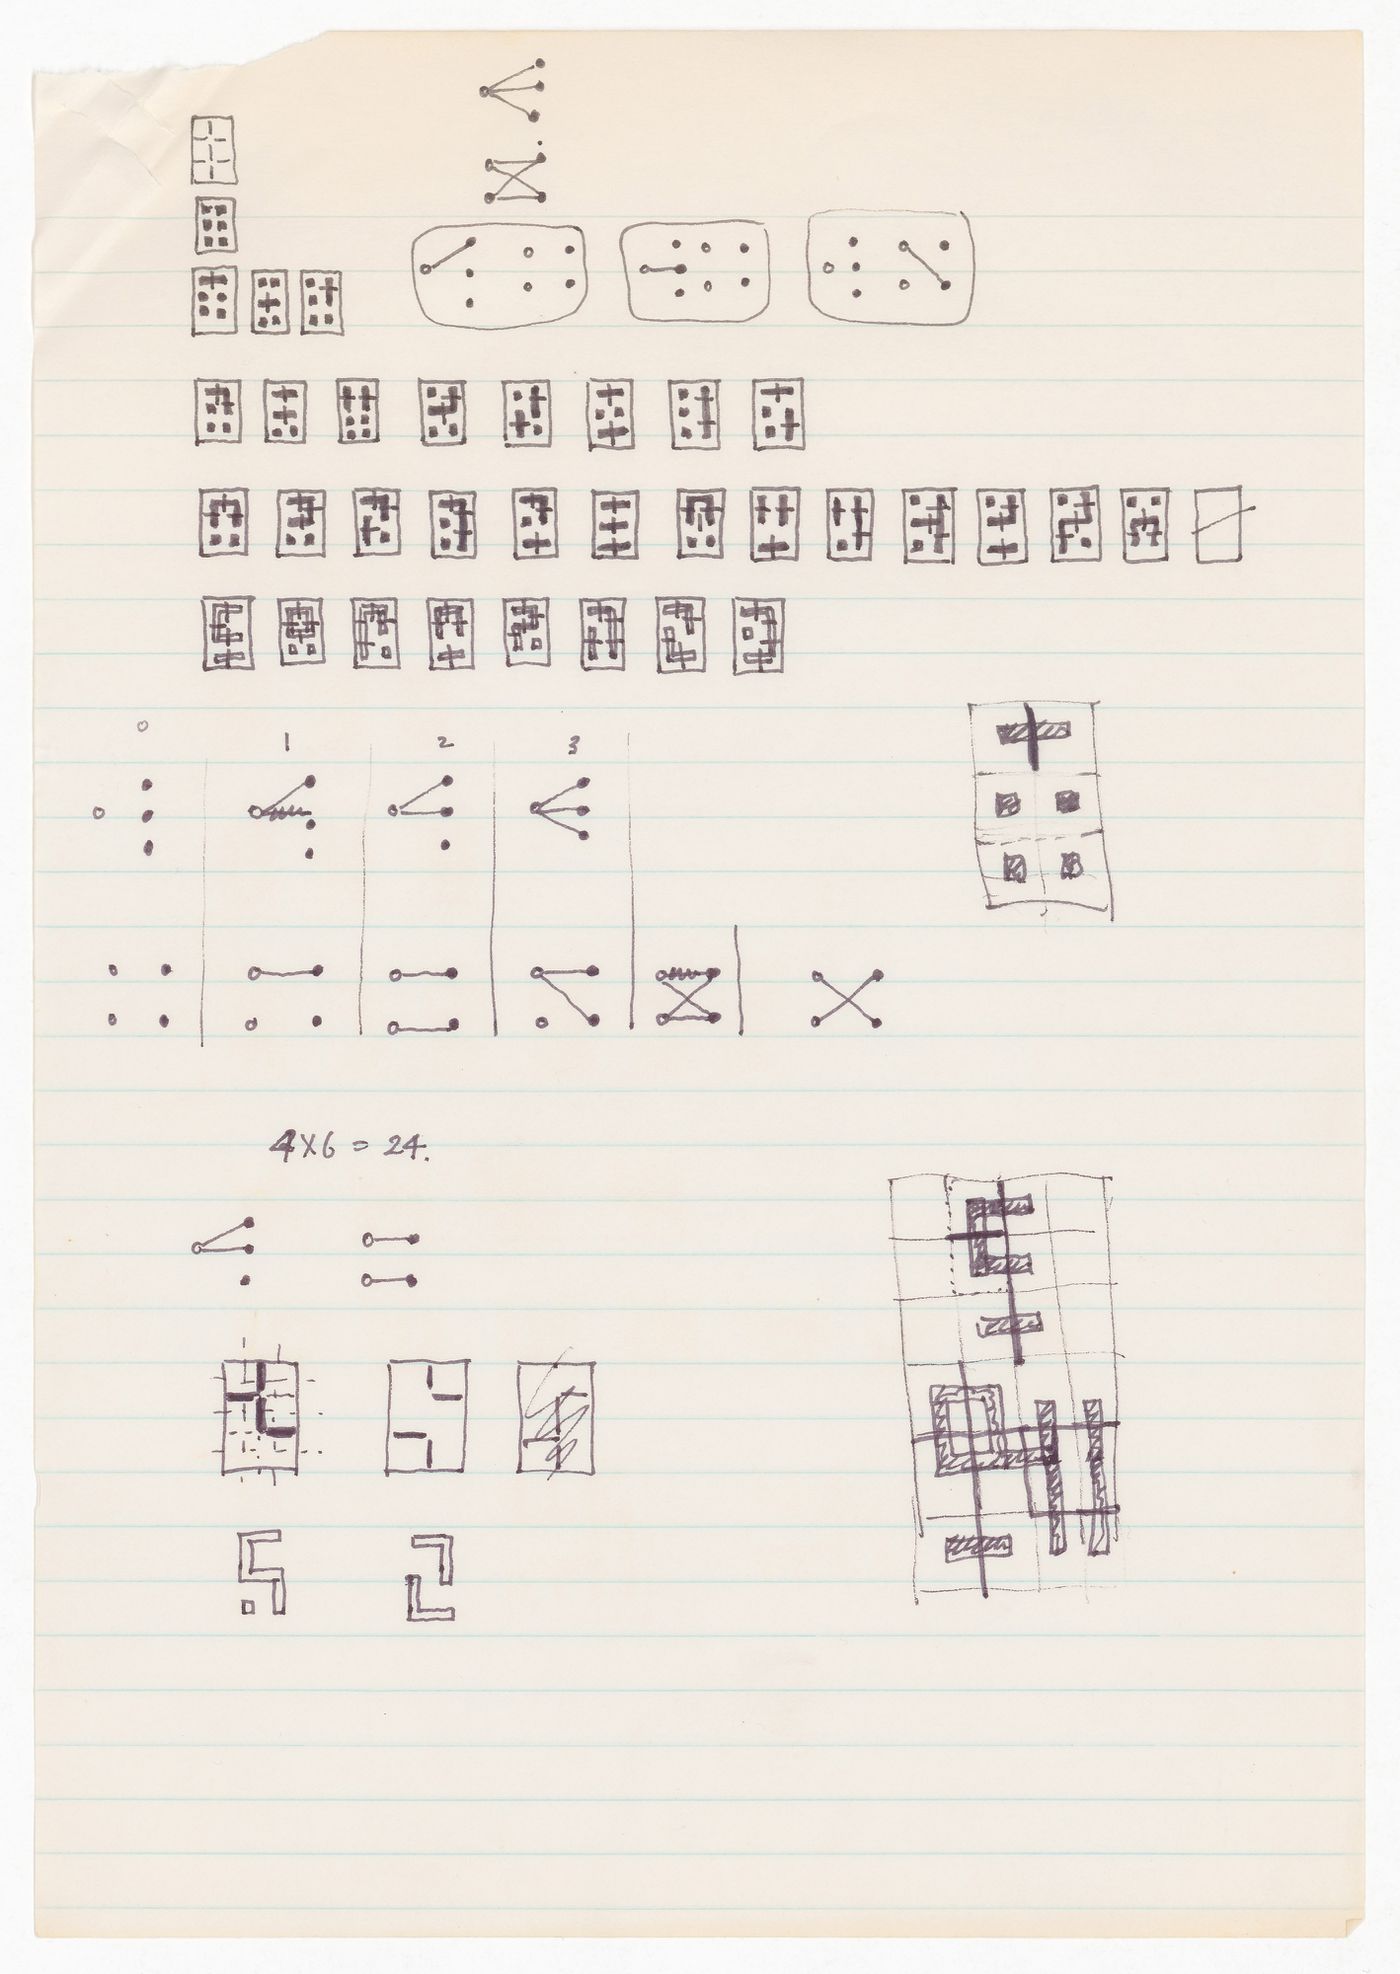 1 2 3
4×6 = 24.